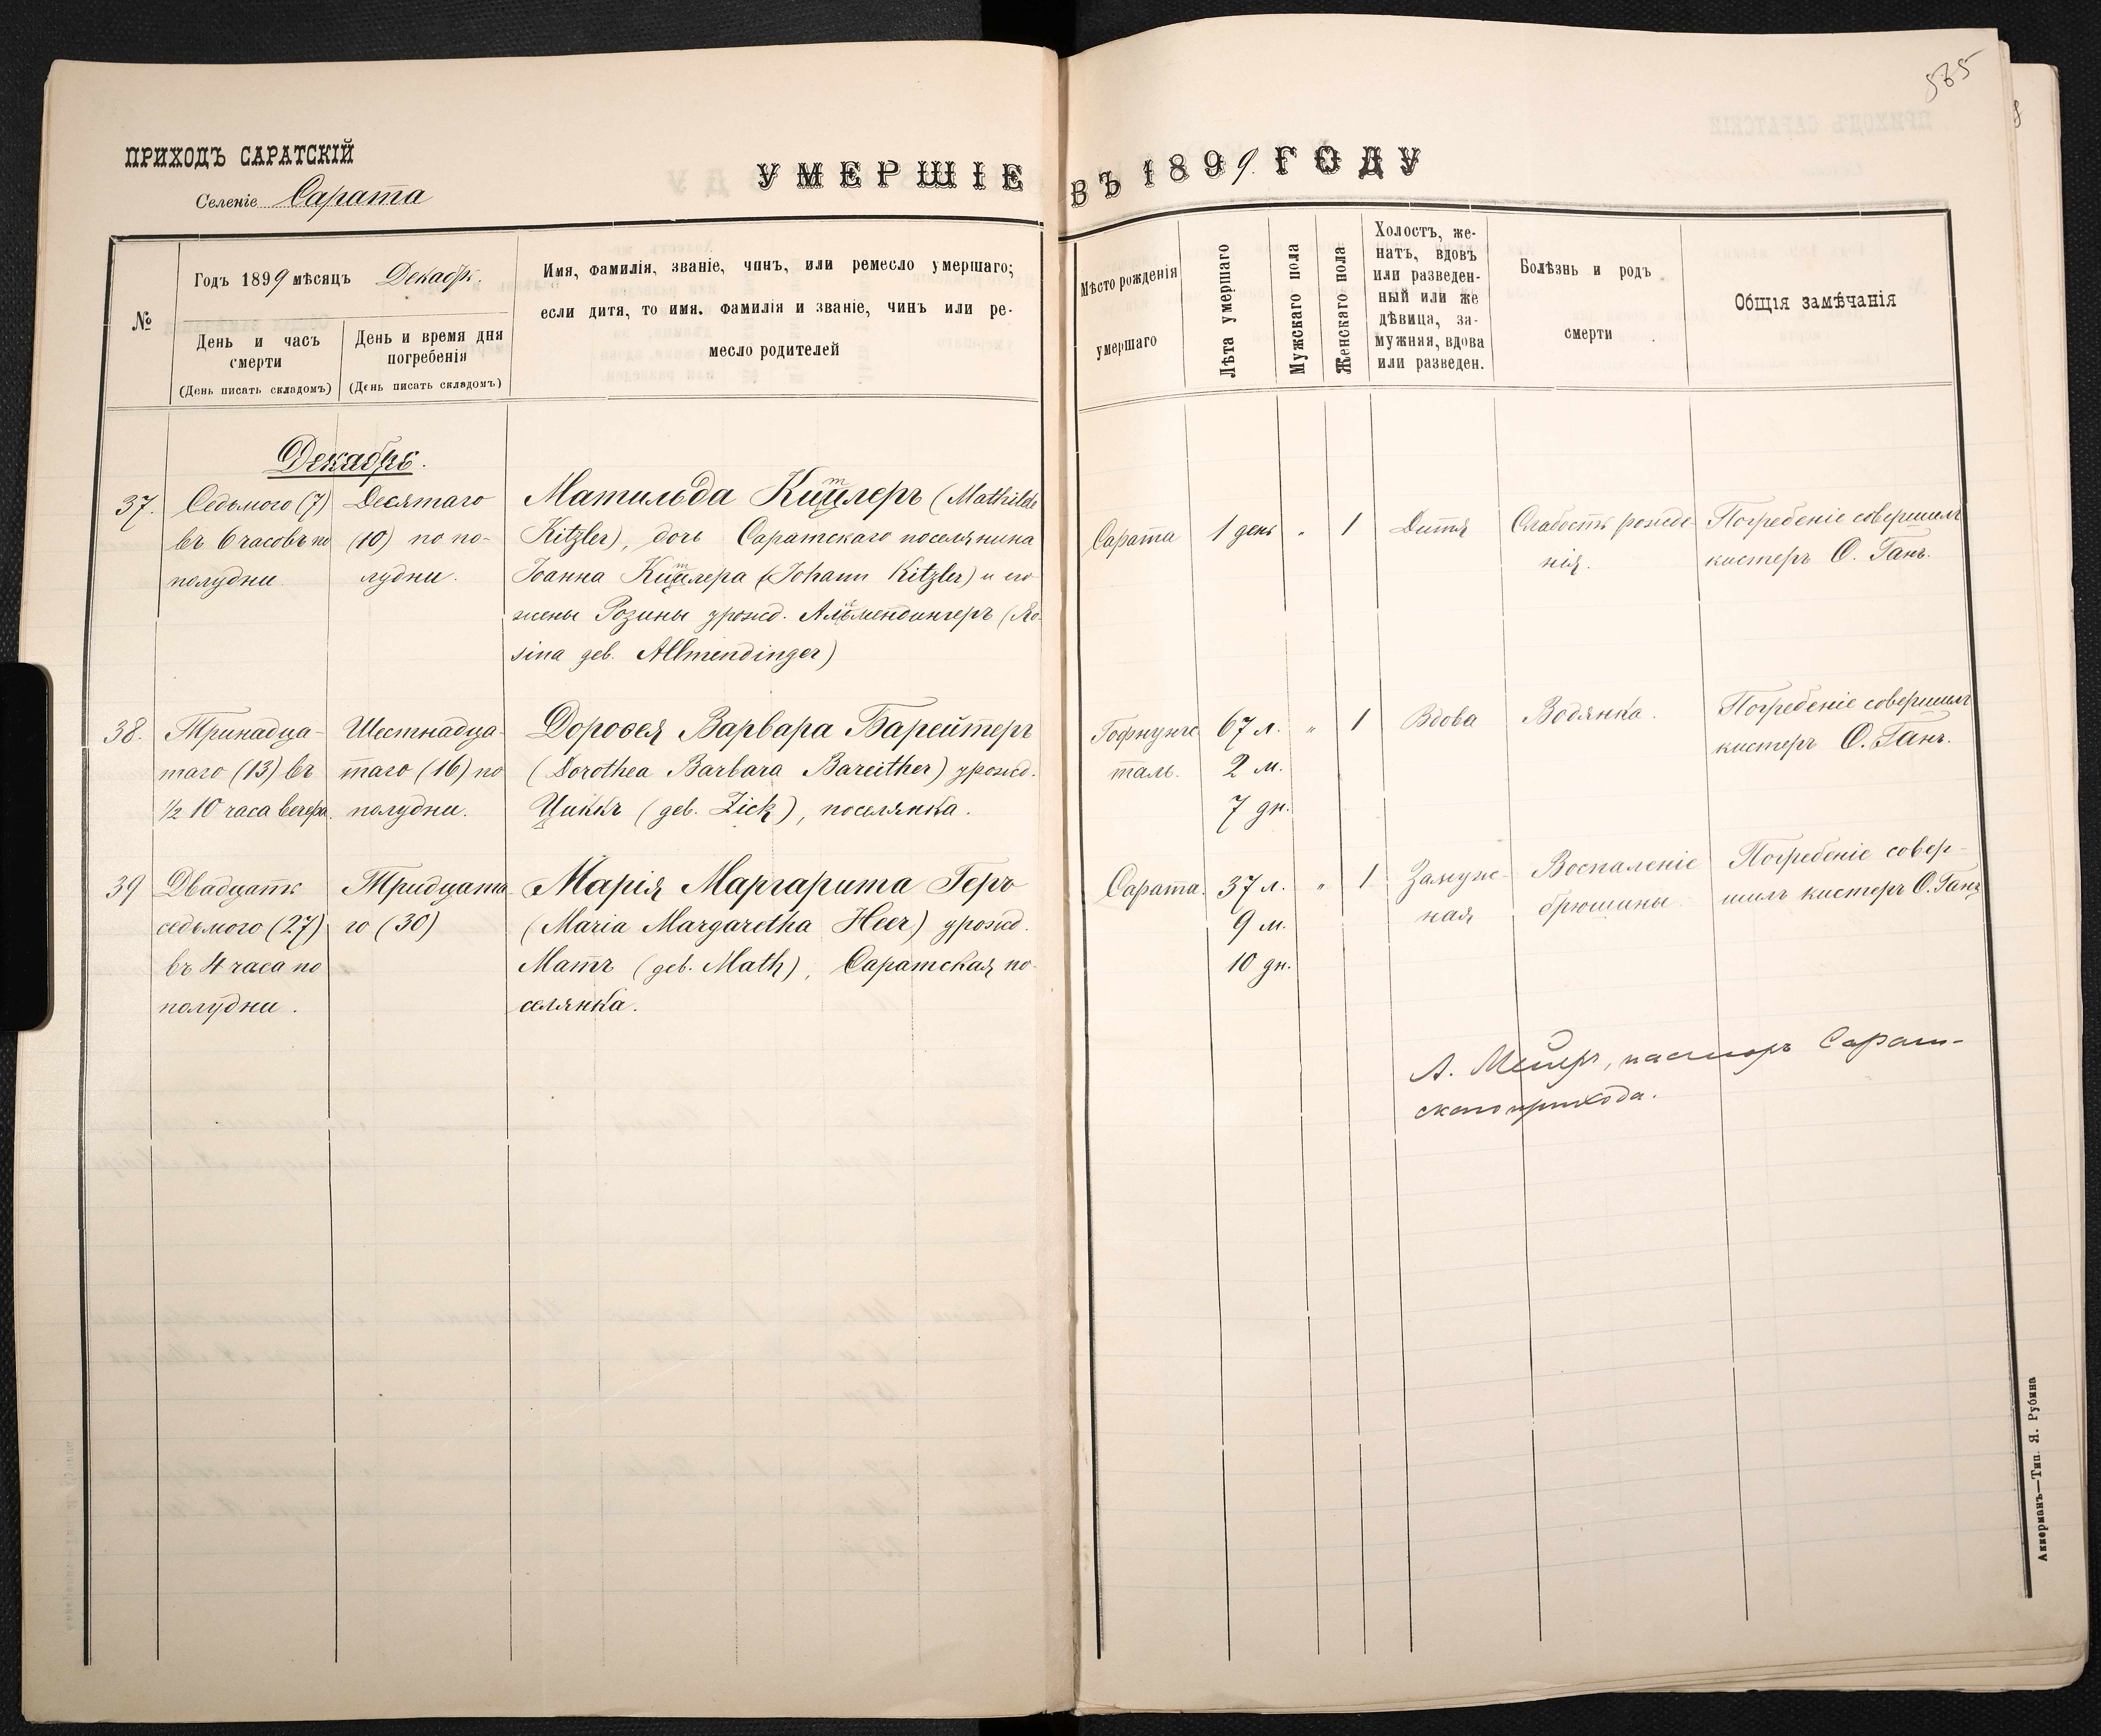 565
ПРИХОДЪ САРАТСКІЙ
Селеніе Сарата
УМЕРШІЕ ВЪ 1899. ГОДУ
№
Годъ 1899 мѣсяцъ Декабрь.
День и часъ
смерти
(День писать складомъ)
День и время дня
погребенія
(День писать складомъ)
Имя, фамилія, званіе, чинъ, или ремесло умершаго;
если дитя, то имя. фамилія и званіе, чинъ или ре-
месло родителей
Мѣсто рожденія
умершаго
Лѣта умершаго
Мужскаго пола
Женскаго пола
Холостъ, же-
натъ, вдовъ
или разведен-
ный или же
дѣвица, за-
мужняя, вдова
или разведен.
Болѣзнь и родъ
смерти
Общія замѣчанія
Декабрь.
37.
Седьмого (7)
въ 6 часовъ по
полудни.
Десятаго
(10) по по-
лудни.
Матильда Китцлеръ (Mathilde
Kitzler), дочь Саратскаго поселянина
Іоанна Китцлера (Johann Kitzler) и его
жены Розины урожд. Алльмендингеръ (Ro-
sina geb. Allmendinger)
Сарата
1 день
"
1
Дитя
Слабость рожде-
нія.
Погребеніе совершилъ
кистеръ О. Ганъ.
38.
Тринадца-
таго (13) въ
1/2 10 часа вечера.
Шестнадца-
таго (16) по
полудни.
Доровея Варвара Барейтеръ
(Dorothea Barbara Bareither) урожд.
Циккъ (geb. Zick), поселянка.
Гофнунгс
таль.
67 л.
2 м.
7 дн.
"
1
Вдова
Водянка.
Погребеніе совершилъ
кистеръ О. Ганъ.
39
Двадцать
седьмого (27)
въ 4 часа по
полудни.
Тридцата
го (30)
Марія Маргарита Геръ
(Maria Margaretha Heer) урожд.
Матъ (geb. Math), Саратская по-
селянка.
Сарата.
37 л.
9 м.
10 дн.
"
1
Замуж-
ная
Воспаленіе
брюшины.
Погребеніе совер-
шилъ кистеръ О. Ганъ
А. Мейеръ, пасторъ Сарат-
скаго прихода.
Аккерманъ—Тип. Я. Рубина